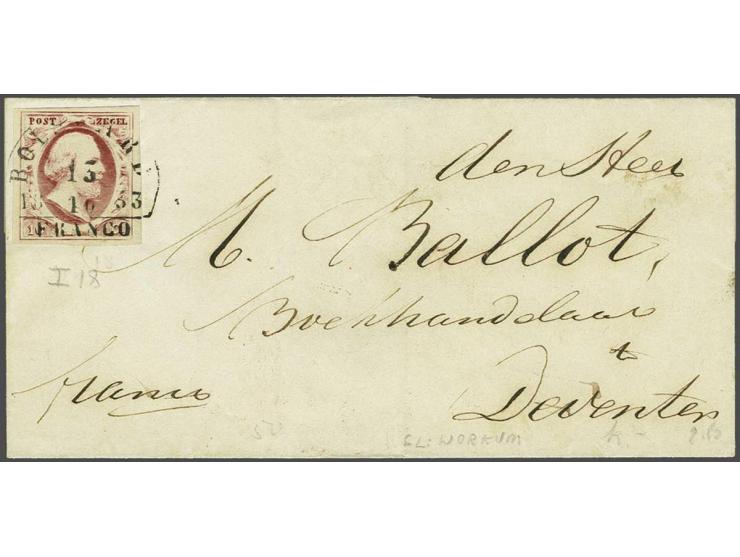 POST ZEGEL
15
10 53
FRANCO
I 18
den Heer
M. Ballot,
Boekhandelaar
te
Deventer
franco
GL: WORKUM